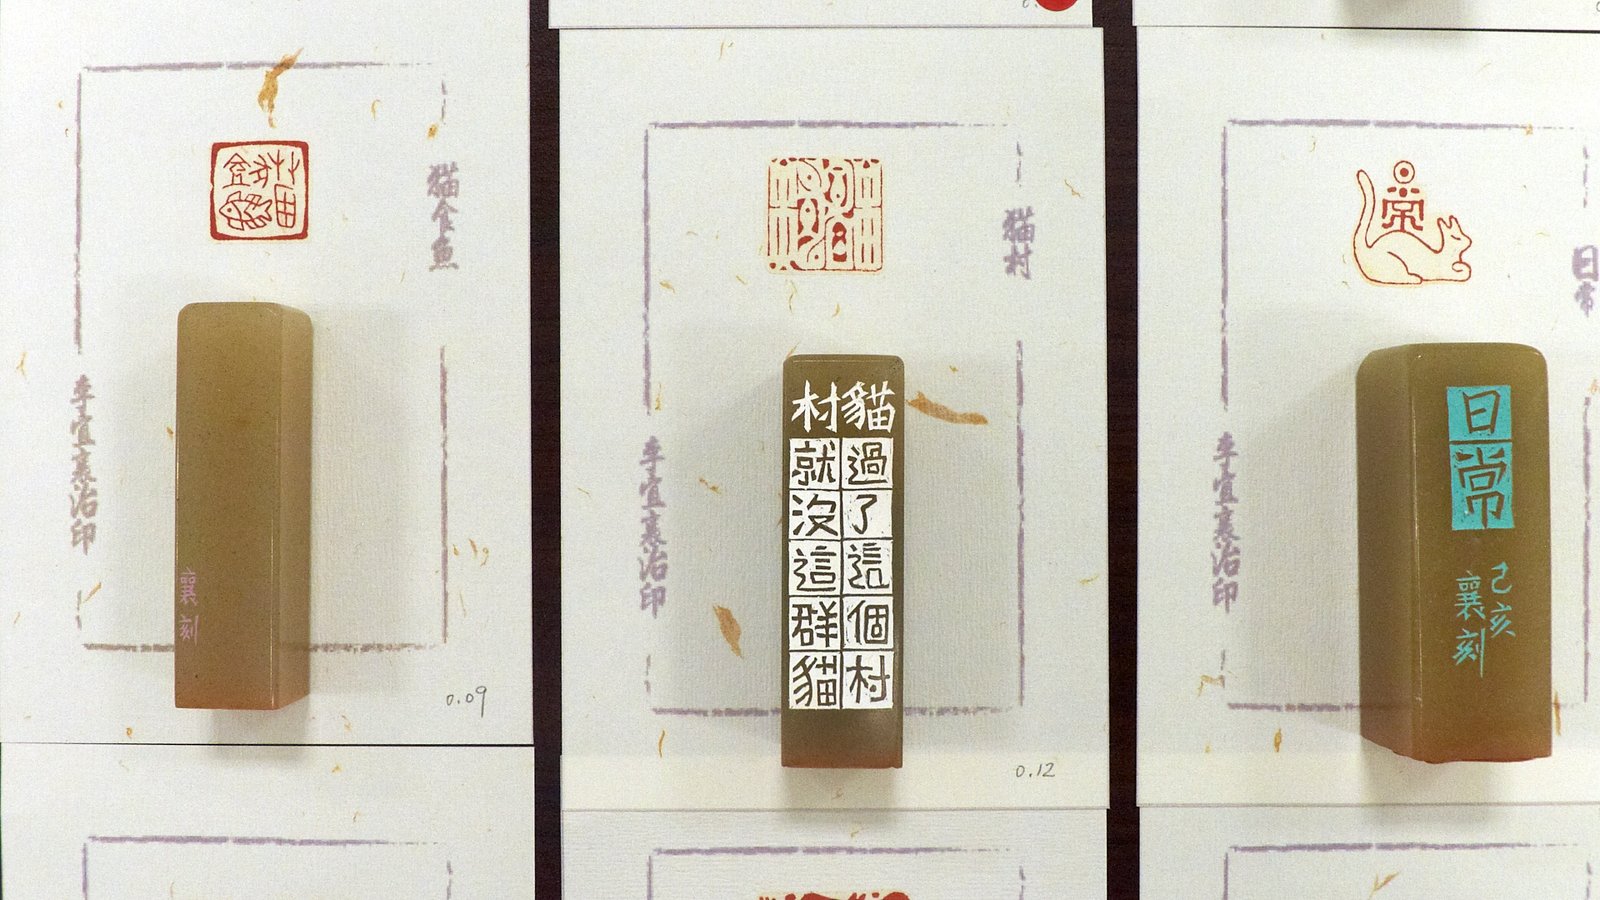 貓食魚
李宜襄治印
襄刻
0.09
貓村
李宜襄治印
貓村
過了這個村
就沒這群貓
0.12
日常
日常
李宜襄治印
日常
己亥
襄刻